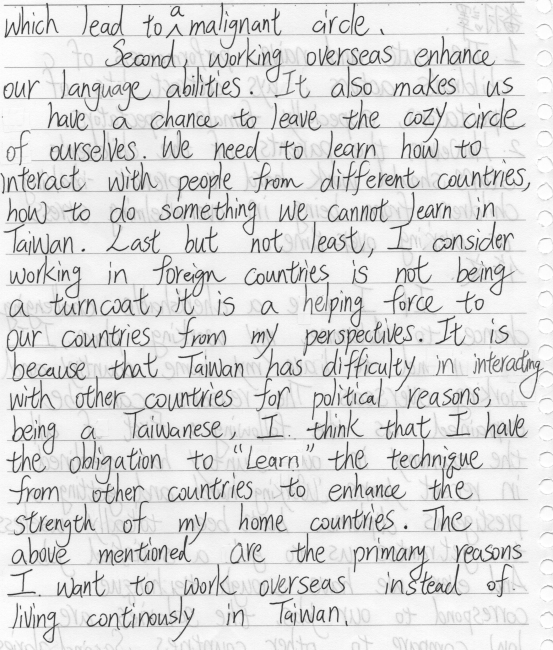 which lead to a malignant circle.
Second, working overseas enhance
our language abilities. It also makes us
have a chance to leave the cozy circle
of ourselves. We need to learn how to
interact with people from different countries,
how to do something we cannot learn in
Taiwan. Last but not least, I consider
working in foreign countries is not being
a turncoat, it is a helping force to
our countries from my perspectives. It is
because that Taiwan has difficulty in interacting
with other countries for political reasons,
being a Taiwanese, I think that I have
the obligation to "Learn" the technique
from other countries to enhance the
strength of my home countries. The
above mentioned are the primary reasons
I want to work overseas instead of
living continously in Taiwan.